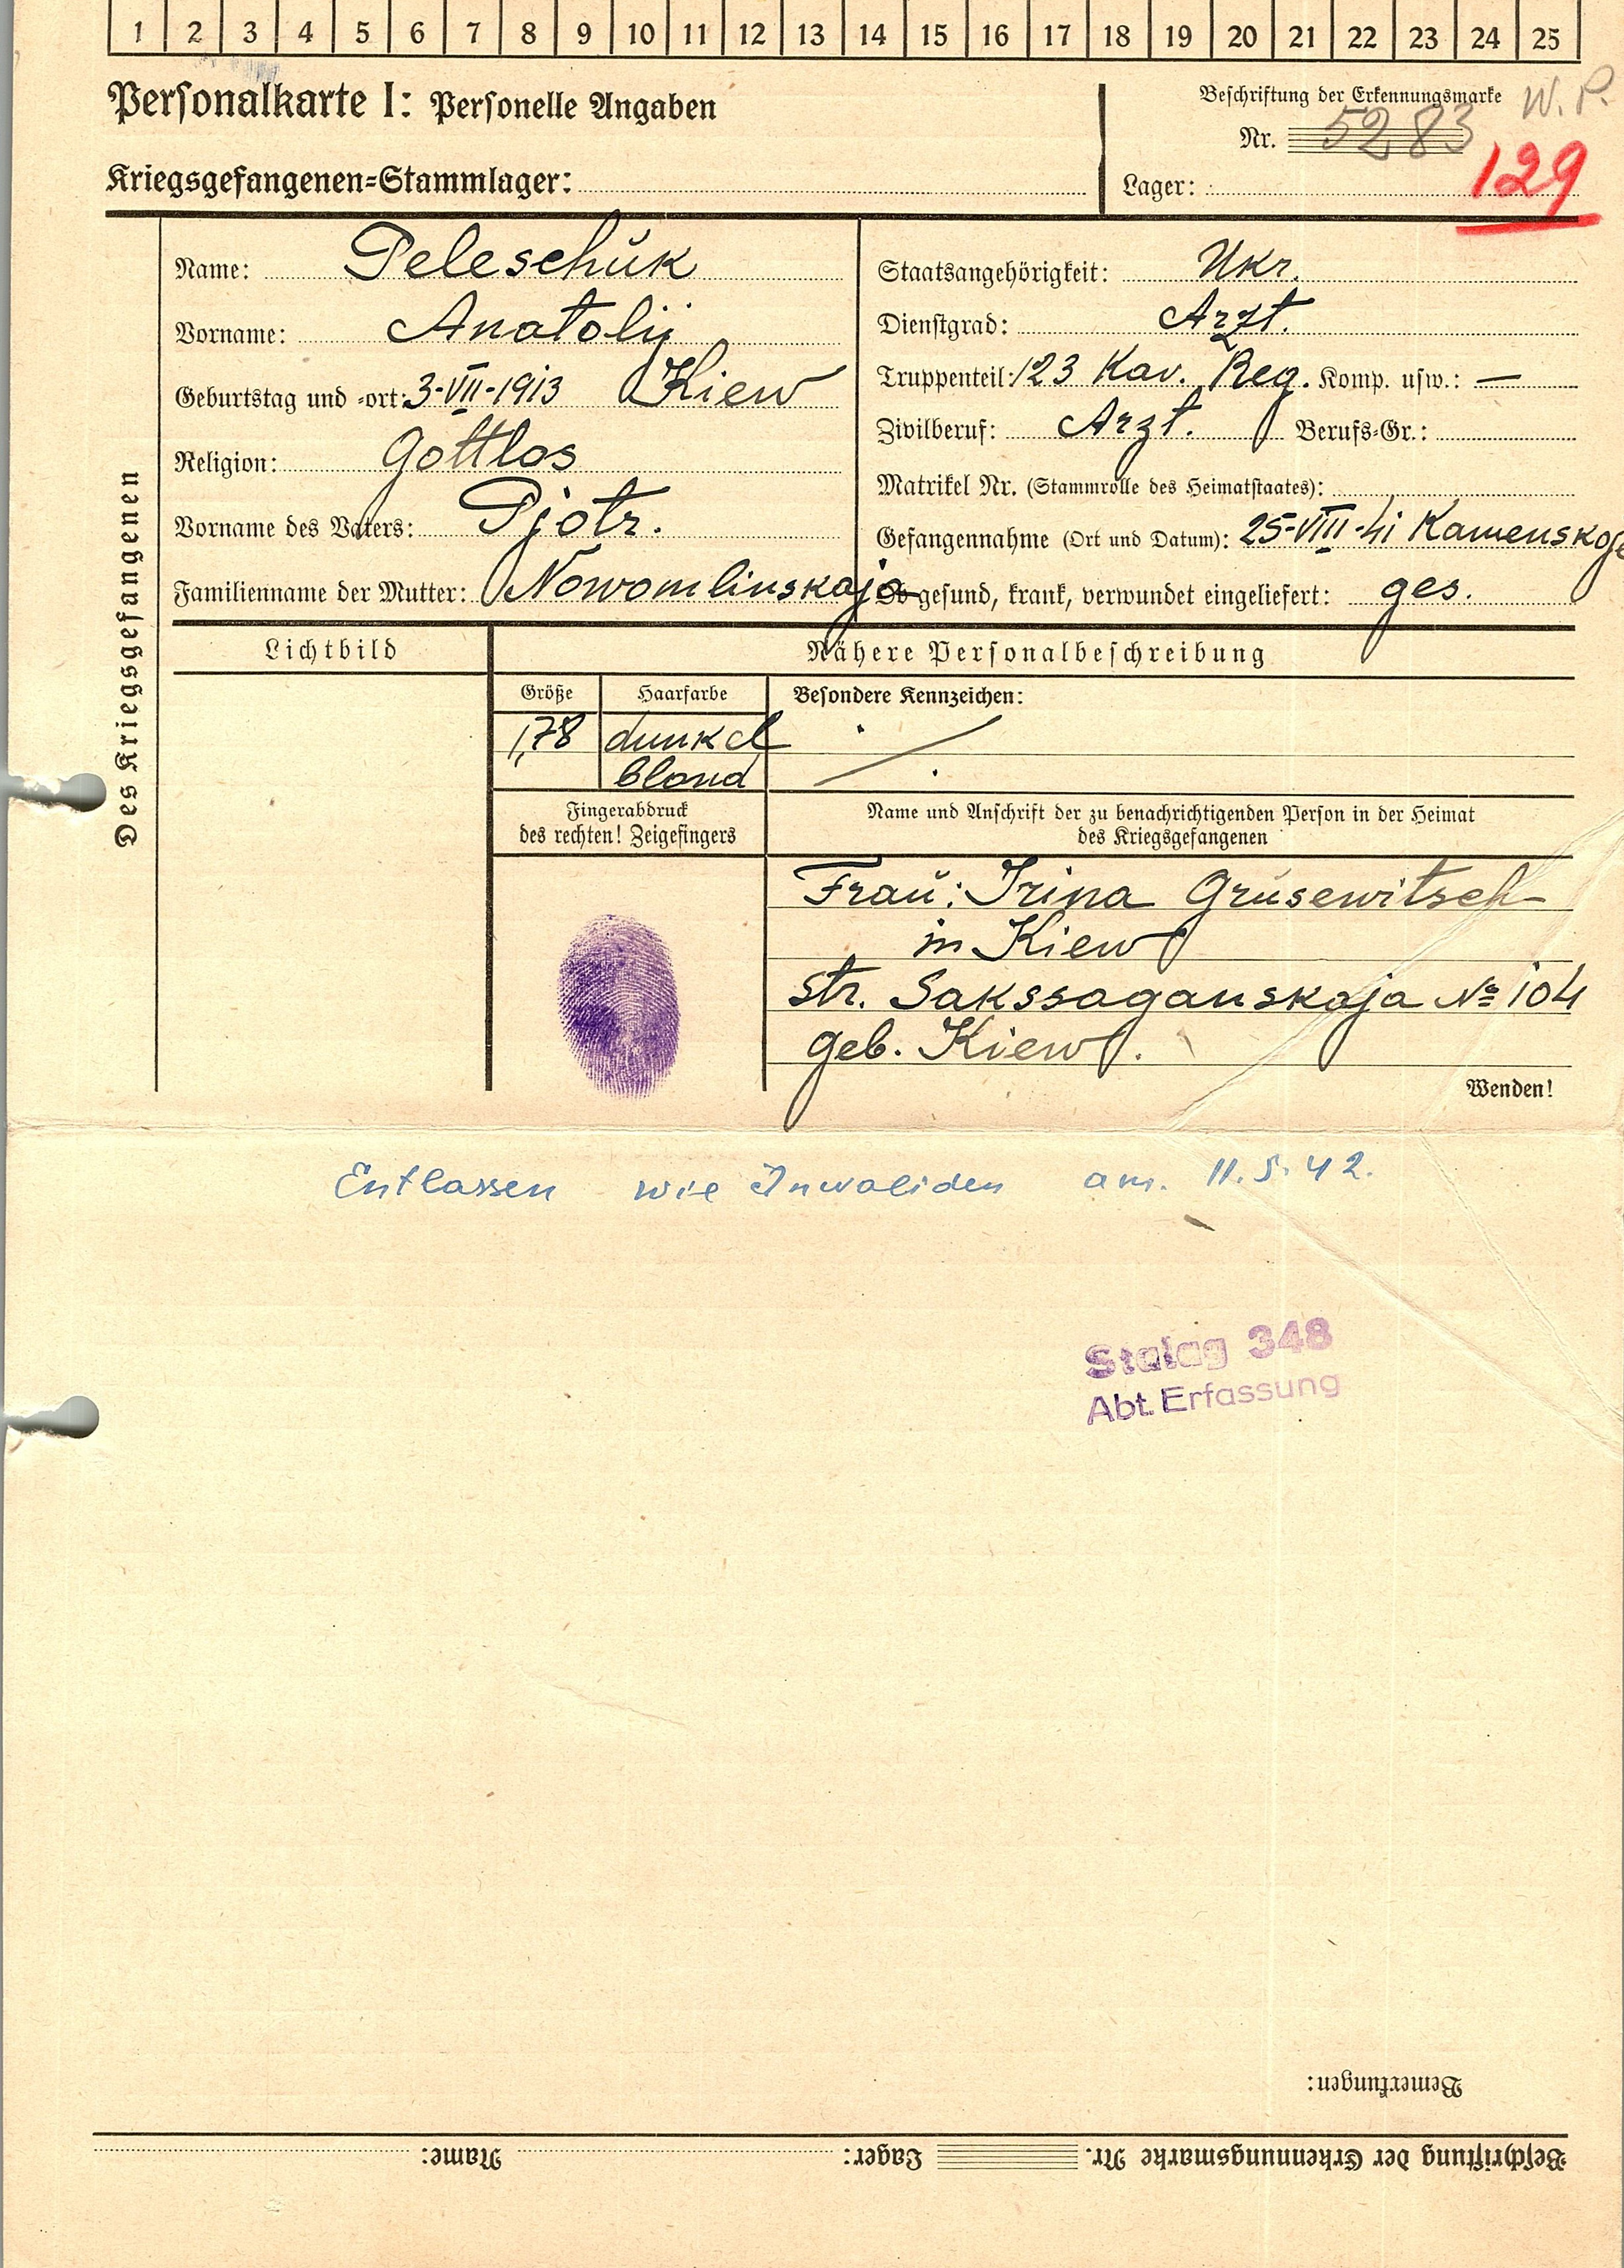 1 2 3 4 5 6 7 8 9 10 11 12 13 14 15 16 17 18 19 20 21 22 23 24 25
Personalkarte I: Personelle Angaben
Beschriftung der Erkennungsmarke W. P.
Nr. 5283
Kriegsgefangenen=Stammlager:
Lager: 129
Des Kriegsgefangenen
Name: Peleschŭk
Vorname: Anatolij
Geburtstag und =ort: 3-VII-1913 Kiew
Religion: Gottlos
Vorname des Vaters: Pjotr.
Familienname der Mutter: Nowomlinskaja
Staatsangehörigkeit: Ukr.
Dienstgrad: Arzt.
Truppenteil: 123 Kav. Reg. Komp. usw.: —
Zivilberuf: Arzt. Berufs=Gr.:
Matrikel Nr. (Stammrolle des Heimatstaates):
Gefangennahme (Ort und Datum): 25-VIII-41 Kamenskoje
Ob gesund, krank, verwundet eingeliefert: ges.
Lichtbild
Nähere Personalbeschreibung
Größe Haarfarbe Besondere Kennzeichen:
1,78 dunkel
blond
Fingerabdruck
des rechten! Zeigefingers
Name und Anschrift der zu benachrichtigenden Person in der Heimat
des Kriegsgefangenen
Fraŭ: Irina Grŭsewitsch
in Kiew
Str. Sakssaganskaja № 104
geb. Kiew.
Wenden!
Entlassen wie Invaliden am. 11.5.42.
Stalag 348
Abt. Erfassung
Bemerkungen:
Beschriftung der Erkennungsmarke Nr. Lager: Name: